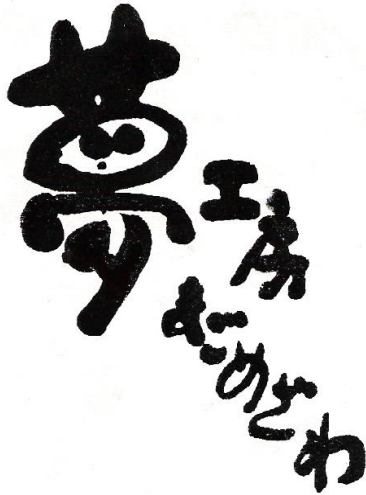 夢工房
だめざわ